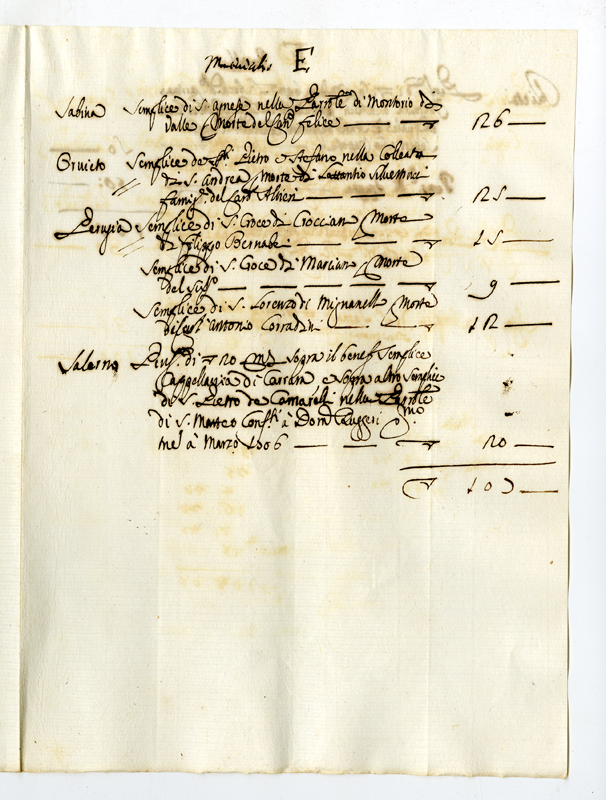 E
Sabina Semplice di S. Agnese nella Parrle di Montorio di
Valle Morte del Can.º Felice — — 26 —
Orvieto Semplice de SS. Pietro e Stefano nella Colleg.ta
di S. Andrea Morte di Lattantio Silvestrini
famig.e del Card. Altieri — — 25 —
Perugia Semplice di S. Croce di Croccian Morte
di Filippo Bernabei — — 15 —
Semplice di S. Croce di Marcian Morte
del sud.º — — — 9 —
Semplice di S. Lorenzo di Mignanell Morte
Antonio Corradini — 12 —
Salerno Pens. di 20 sopra il benef. Semplice
Cappellania di Carrara e sopra altro Semplice
di S. Pietro de Camarelli nella Parrle
di S. Matteo à Dom.º Ruggeri
à Marzo 1706 — — 20 —
107 —